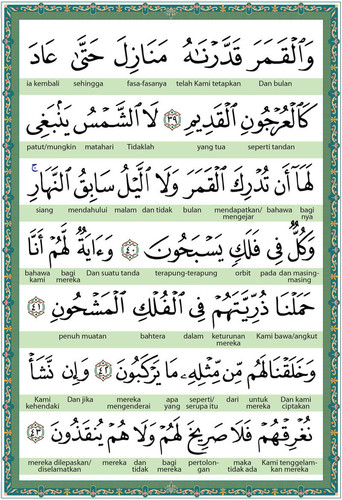 وَٱلْقَمَرَ قَدَّرْنَـٰهُ مَنَازِلَ حَتَّىٰ عَادَ
ia kembali sehingga fasa-fasanya telah Kami tetapkan Dan bulan
كَٱلْعُرْجُونِ ٱلْقَدِيمِ ۝٣٩ لَا ٱلشَّمْسُ يَنۢبَغِى
patut/mungkin matahari Tidaklah yang tua seperti tandan
لَهَآ أَن تُدْرِكَ ٱلْقَمَرَ وَلَا ٱلَّيْلُ سَابِقُ ٱلنَّهَارِ ۚ
siang mendahului malam dan tidak bulan mendapatkan/ mengejar bahawa bagi nya
وَكُلٌّ فِى فَلَكٍ يَسْبَحُونَ ۝٤٠ وَءَايَةٌ لَّهُمْ أَنَّا
bahawa kami bagi mereka Dan suatu tanda terapung-terapung orbit pada dan masing-masing
حَمَلْنَا ذُرِّيَّتَهُمْ فِى ٱلْفُلْكِ ٱلْمَشْحُونِ ۝٤١
penuh muatan bahtera dalam keturunan mereka Kami bawa/angkut
وَخَلَقْنَا لَهُم مِّن مِّثْلِهِۦ مَا يَرْكَبُونَ ۝٤٢ وَإِن نَّشَأْ
Kami kehendaki Dan jika mereka mengenderai apa yang seperti/ serupa itu dari untuk mereka Dan Kami ciptakan
نُغْرِقْهُمْ فَلَا صَرِيخَ لَهُمْ وَلَا هُمْ يُنقَذُونَ ۝٤٣
mereka dilepaskan/ diselamatkan mereka dan tidak bagi mereka pertolon-gan maka tidak ada Kami tenggelam-kan mereka